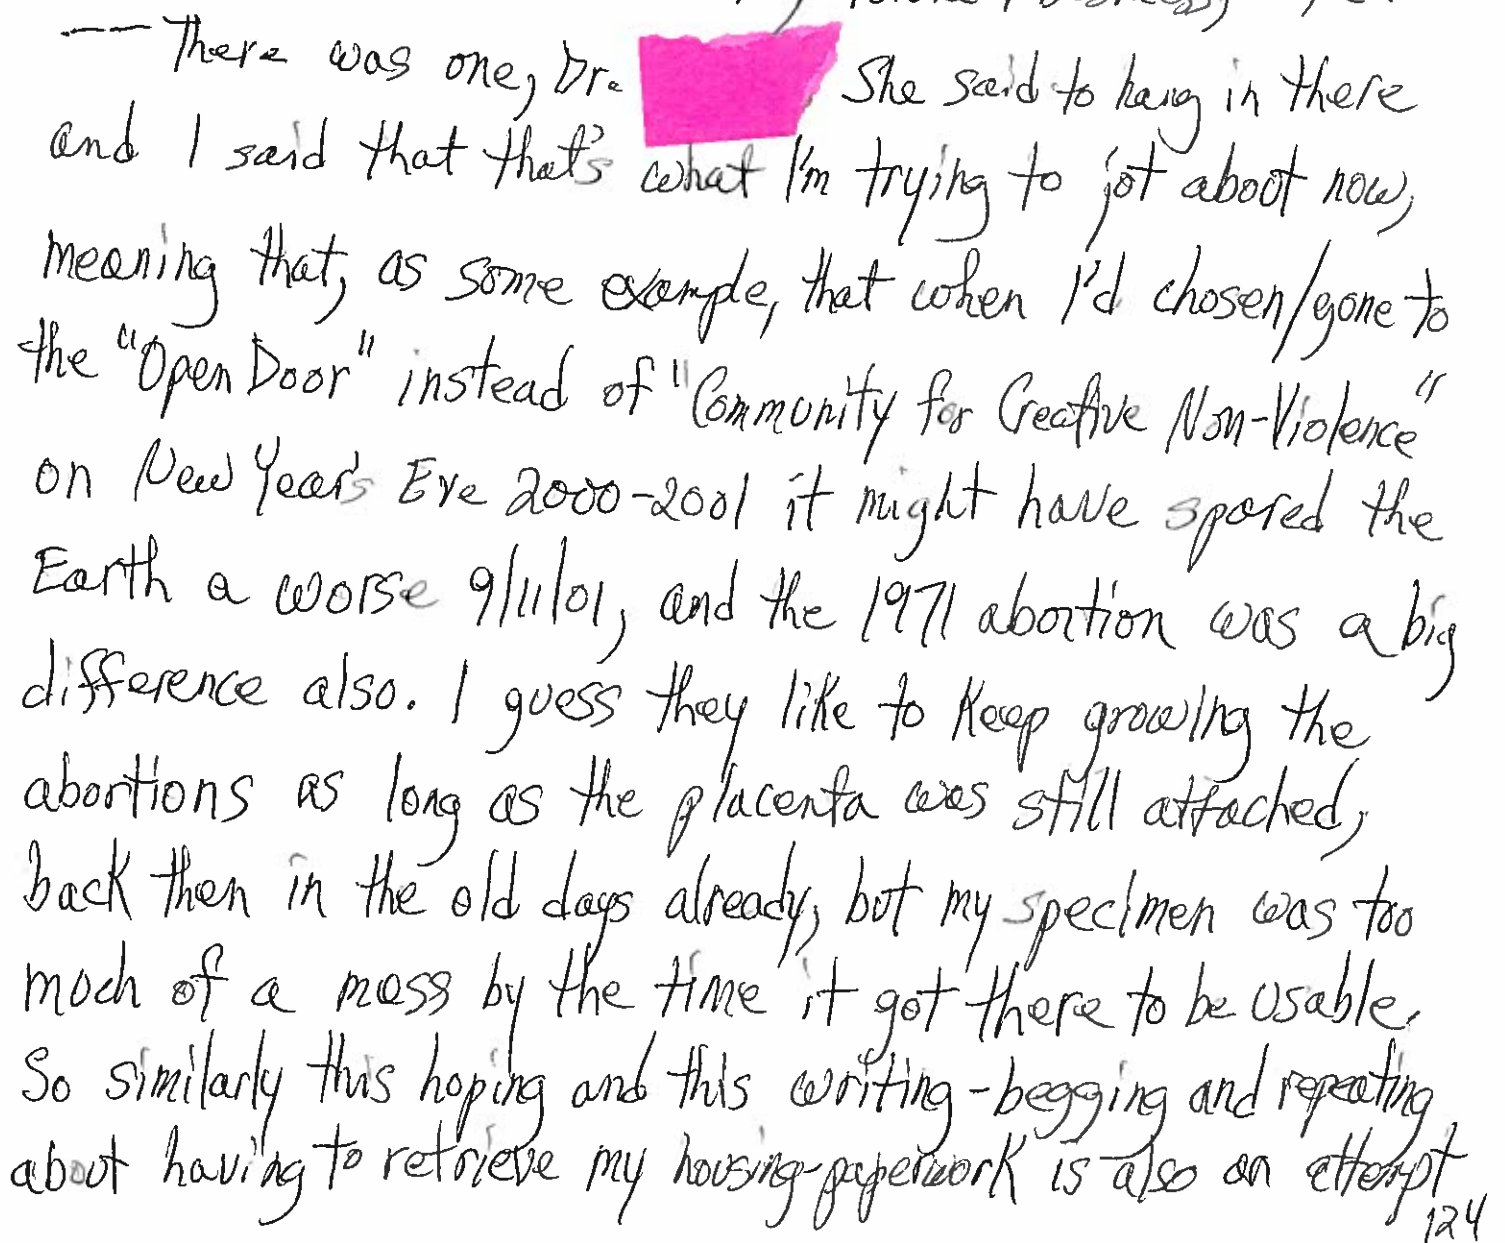 —There was one, Dr. She said to hang in there
and I said that that's what I'm trying to jot about now,
meaning that, as some example, that when I'd chosen/gone to
the "Open Door" instead of "Community for Creative Non-Violence"
on New Year's Eve 2000-2001 it might have spared the
Earth a worse 9/11/01, and the 1971 abortion was a big
difference also. I guess they like to keep growing the
abortions as long as the placenta was still attached,
back then in the old days already, but my specimen was too
much of a mess by the time it got there to be usable.
So similarly this hoping and this writing-begging and repeating
about having to retrieve my housing-paperwork is also an attempt
124